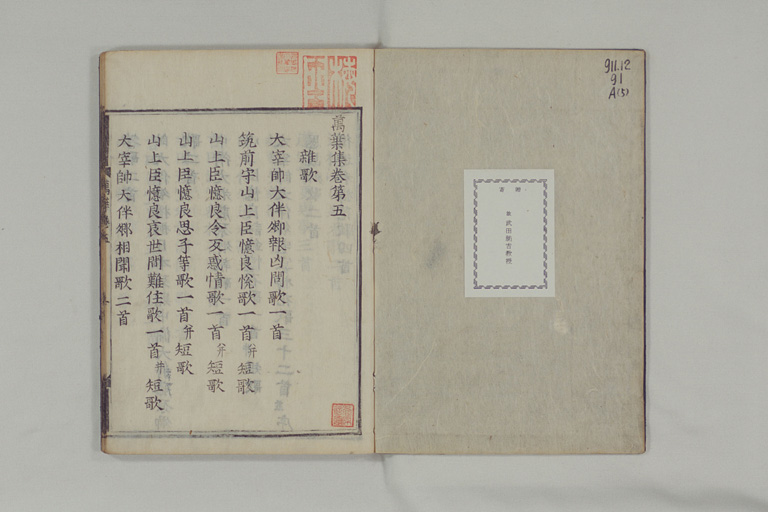 911.12
91
A(5)
萬葉集巻第五
雜歌
大宰帥大伴卿報凶問歌一首
筑前守山上臣憶良悅歌一首并短歌
山上臣憶良令反惑情歌一首并短歌
山上臣憶良思子等歌一首并短歌
山上臣憶良哀世間難住歌一首并短歌
大宰帥大伴卿相聞歌二首